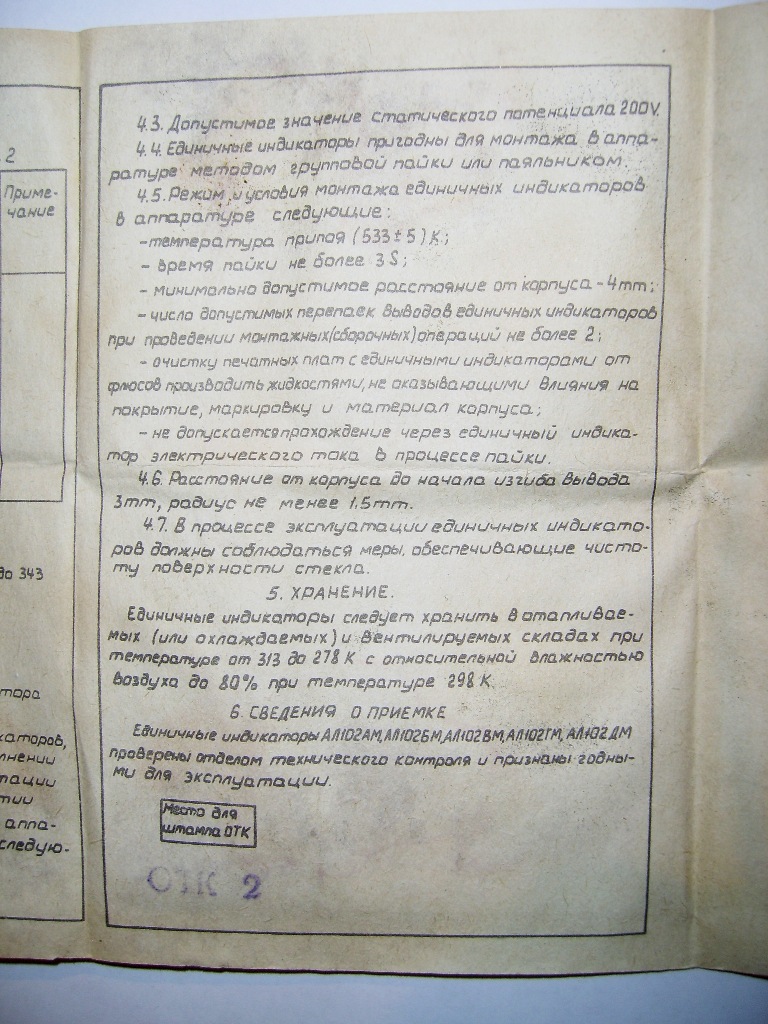 2
Приме-
чание
до 343
тора
каторов,
лнении
тации
тии
аппа-
следую-
4.3. Допустимое значение статического потенциала 200V.
4.4. Единичные индикаторы пригодны для монтажа в аппа-
ратуре методом групповой пайки или паяльником.
4.5. Режим и условия монтажа единичных индикаторов
в аппаратуре следующие:
-температура припоя (533±5)К;
- время пайки не более 3S;
- минимально допустимое расстояние от корпуса - 4mm;
- число допустимых перепаек выводов единичных индикаторов
при проведении монтажных(сборочных)операций не более 2;
- очистку печатных плат с единичными индикаторами от
флюсов производить жидкостями, не оказывающими влияния на
покрытие, маркировку и материал корпуса;
- не допускается прохождение через единичный индика-
тор электрического тока в процессе пайки.
4.6. Расстояние от корпуса до начала изгиба вывода
3mm, радиус не менее 1.5mm.
4.7. В процессе эксплуатации единичных индикато-
ров должны соблюдаться меры, обеспечивающие чисто-
ту поверхности стекла.
5. ХРАНЕНИЕ.
Единичные индикаторы следует хранить в отапливае-
мых (или охлаждаемых) и вентилируемых складах при
температуре от 313 до 278 К с относительной влажностью
воздуха до 80% при температуре 298 К.
6. СВЕДЕНИЯ О ПРИЕМКЕ
Единичные индикаторы АЛ102АМ, АЛ102БМ, АЛ102ВМ, АЛ102ГМ, АЛ102ДМ
проверены отделом технического контроля и признаны годны-
ми для эксплуатации.
Место для
штампа ОТК
ОТК 2